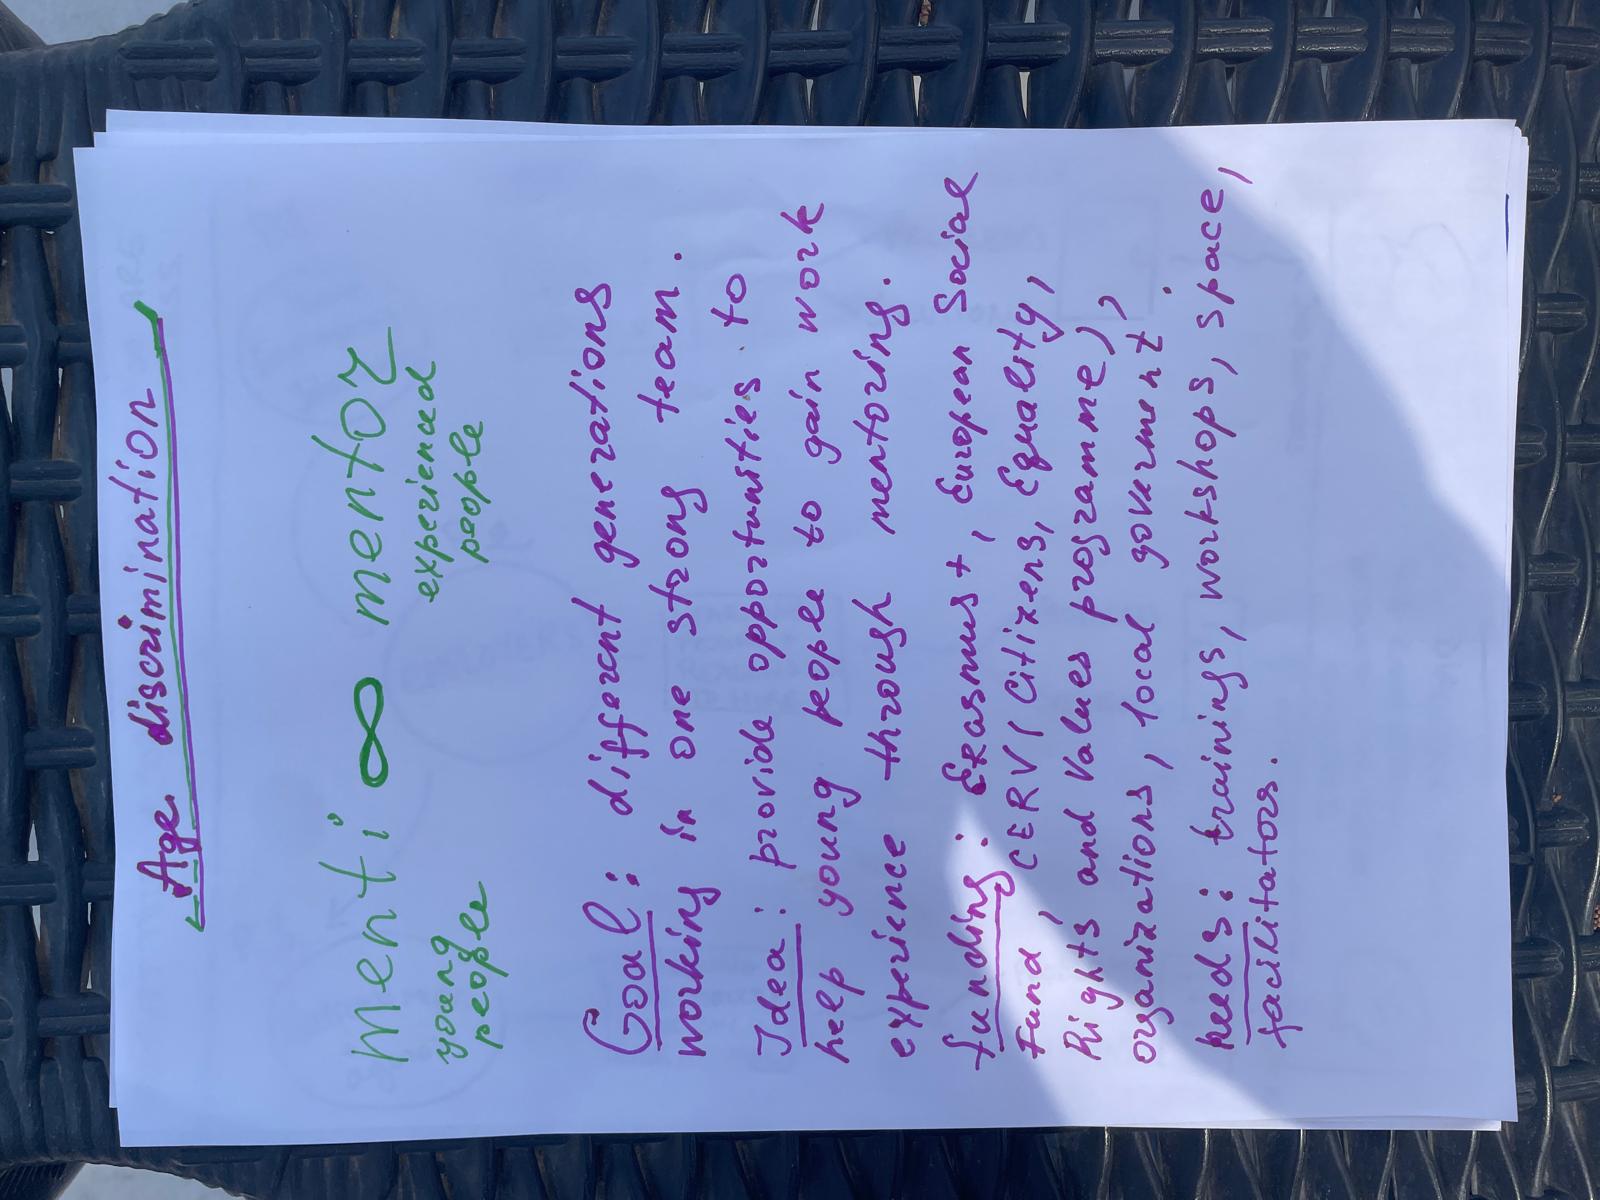 Age discrimination
menti ∞ mentor
young people
experienced people
Goal: different generations
working in one strong team.
Idea: provide opportunities to
help young people to gain work
experience through mentoring.
funding: Erasmus+, European Social
Fund, CERV (Citizens, Equality,
Rights and Values programme),
organizations, local goverment.
needs: trainings, workshops, space,
facilitators.